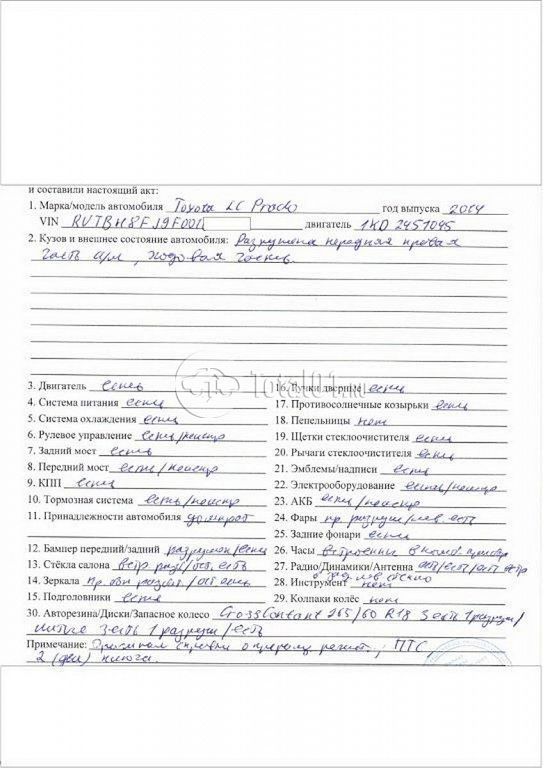 и составили настоящий акт:
1. Марка/модель автомобиля Toyota LC Prado год выпуска 2014
VIN RUTBH8FJ9F001 двигатель 1KD 2451045
2. Кузов и внешнее состояние автомобиля: Разрушена передняя правая
часть а/м, ходовая часть.
Total01.ru
3. Двигатель есть
4. Система питания есть
5. Система охлаждения есть
6. Рулевое управление есть/неиспр
7. Задний мост есть
8. Передний мост есть/неиспр
9. КПП есть
10. Тормозная система есть/неиспр
11. Принадлежности автомобиля домкрат
12. Бампер передний/задний разрушен/есть
13. Стёкла салона ветр. разб/ост. есть
14. Зеркала пр. разбит/ост. есть
15. Подголовники есть
16. Ручки дверные есть
17. Противосолнечные козырьки есть
18. Пепельницы нет
19. Щетки стеклоочистителя есть
20. Рычаги стеклоочистителя есть
21. Эмблемы/надписи есть
22. Электрооборудование есть/неиспр
23. АКБ есть/неиспр
24. Фары пр. разруш/лев. есть
25. Задние фонари есть
26. Часы встроенные в
27. Радио/Динамики/Антенна есть/есть/есть
28. Инструмент нет
29. Колпаки колёс нет
30. Авторезина/Диски/Запасное колесо CrossContact 265/60 R18 3 есть 1 разруш/
литые 3 есть 1 разруш/есть
Примечание: Оригинал справки о ПТС,
2 (два) ключа.